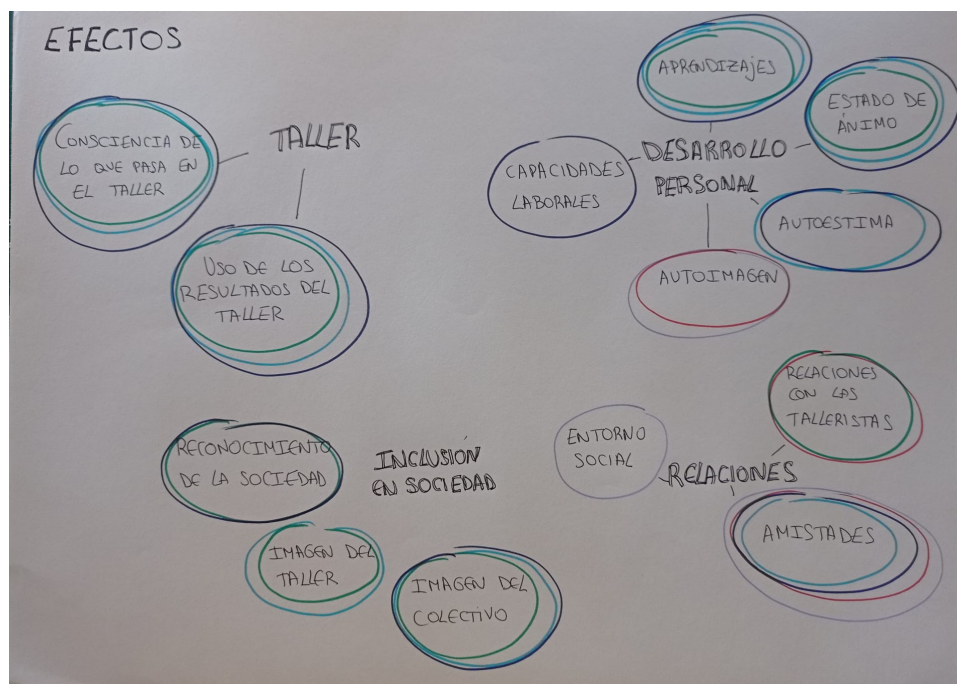 EFECTOS
CONSCIENCIA DE
LO QUE PASA EN
EL TALLER
TALLER
USO DE LOS
RESULTADOS DEL
TALLER
APRENDIZAJES
ESTADO DE
ÁNIMO
CAPACIDADES
LABORALES
DESARROLLO
PERSONAL
AUTOESTIMA
AUTOIMAGEN
RECONOCIMIENTO
DE LA SOCIEDAD
INCLUSIÓN
EN SOCIEDAD
IMAGEN DEL
TALLER
IMAGEN DEL
COLECTIVO
RELACIONES
CON LAS
TALLERISTAS
ENTORNO
SOCIAL
RELACIONES
AMISTADES